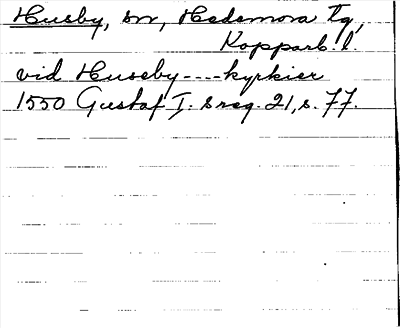 Husby, sn, Hedemora tg,
Kopparb. l.
vid Huseby----kyrkier
1550 Gustaf I. s reg. 21, s. 77.